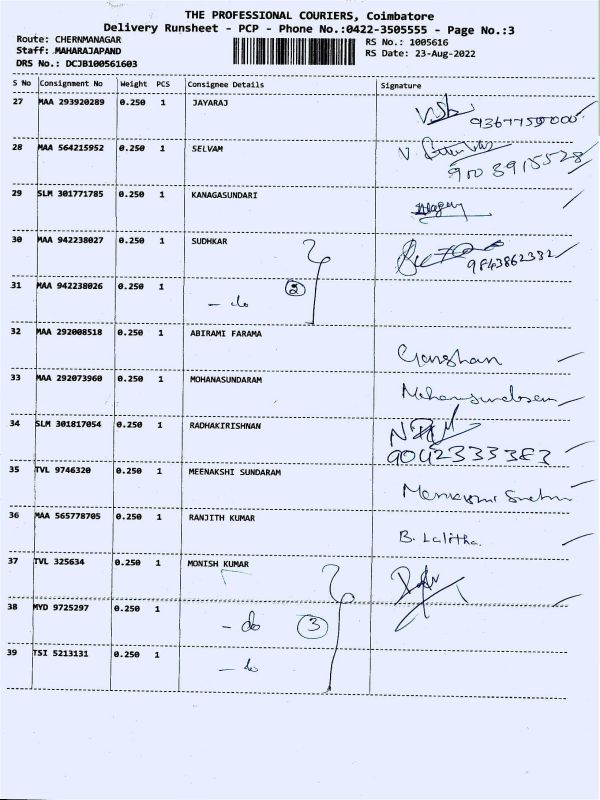 THE PROFESSIONAL COURIERS, Coimbatore
Delivery Runsheet - PCP - Phone No.:0422-3505555 - Page No.:3
Route: CHERNMANAGAR
RS No.: 1005616
Staff: MAHARAJAPAND
RS Date: 23-Aug-2022
DRS No.: DCJB100561603
S No Consignment No Weight PCS Consignee Details Signature
27 MAA 293920289 0.250 1 JAYARAJ
28 MAA 564215952 0.250 1 SELVAM
29 SLM 301771785 0.250 1 KANAGASUNDARI
30 MAA 942238027 0.250 1 SUDHKAR
9843862332
31 MAA 942238026 0.250 1 - do 2
32 MAA 292008518 0.250 1 ABIRAMI FARAMA
33 MAA 292073960 0.250 1 MOHANASUNDARAM
34 SLM 301817054 0.250 1 RADHAKIRISHNAN
9042333383
35 TVL 9746320 0.250 1 MEENAKSHI SUNDARAM
36 MAA 565778705 0.250 1 RANJITH KUMAR B. Lalitha.
37 TVL 325634 0.250 1 MONISH KUMAR
38 MYD 9725297 0.250 1 - do 3
39 TSI 5213131 0.250 1 - do